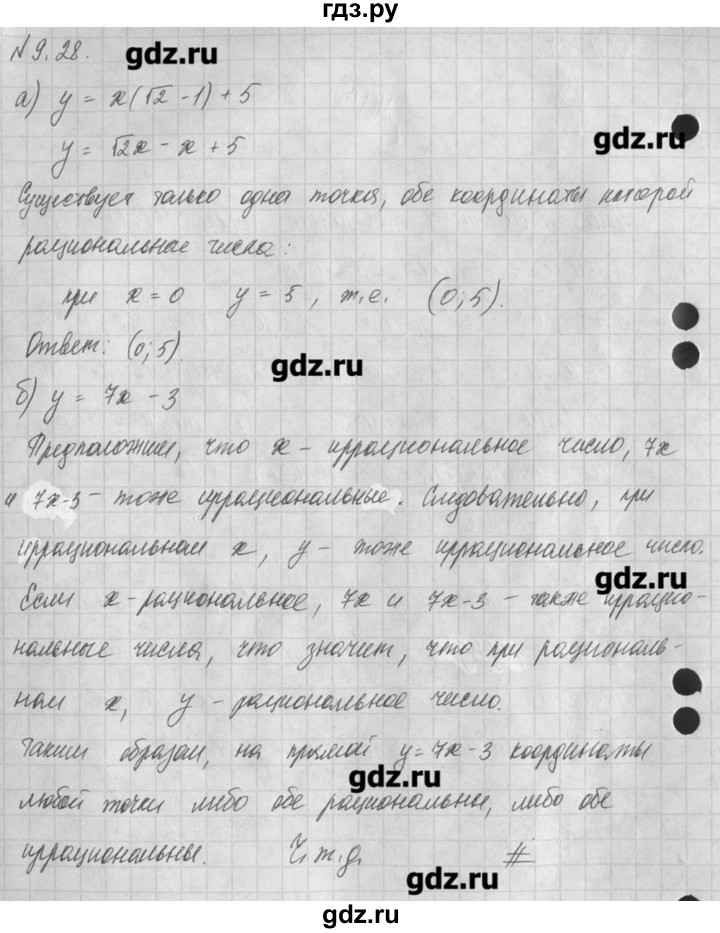 гдз.ру
N 9.28.
gdz.ru
а) y = x(√2 - 1) + 5
gdz.ru
y = √2x - x + 5
Существует только одна точка, обе координаты которой
рациональные числа:
при x = 0 y = 5, т.е. (0; 5).
Ответ: (0; 5)
gdz.ru
б) y = 7x - 3
Предположим, что x - иррациональное число, 7x
и 7x-3 - тоже иррациональные. Следовательно, при
иррациональном x, y - тоже иррациональное число.
gdz.ru
Если x - рациональное, 7x и 7x-3 - также иррацио-
нальные числа, что значит, что при рациональ-
ном x, y - рациональное число.
Таким образом, на прямой y = 7x - 3 координаты
gdz.ru
любой точки либо обе рациональные, либо обе
иррациональны. Ч.т.д. #
gdz.ru
gdz.ru